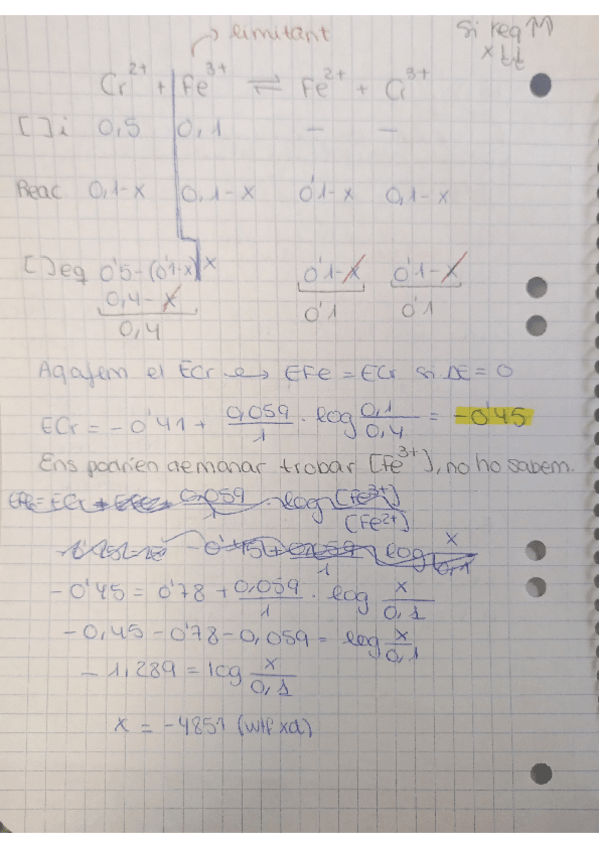 → limitant
Si req M
x tt
Cr²⁺ + Fe³⁺ ⇌ Fe²⁺ + Cr³⁺
[ ]i 0,5 0,1 — —
Reac 0,1-x 0,1-x 0'1-x 0,1-x
[ ]eq 0'5-(0'1-x) x 0'1-x 0'1-x
0,4-x 0'1 0'1
0,4
Agafem el ECr → EFe = ECr si ΔE = 0
ECr = -0'41 + 0,059/1 · log 0,1/0,4 = -0'45
Ens podrien demanar trobar [Fe³⁺], no ho sabem.
0,059/1 · log [Fe³⁺]/[Fe²⁺]
-0'45 + 0,059/1 log x/0,1
-0'45 = 0'78 + 0,059/1 · log x/0,1
-0,45 - 0'78 - 0,059 = log x/0,1
-1,289 = log x/0,1
x = -4851 (wtf xd)